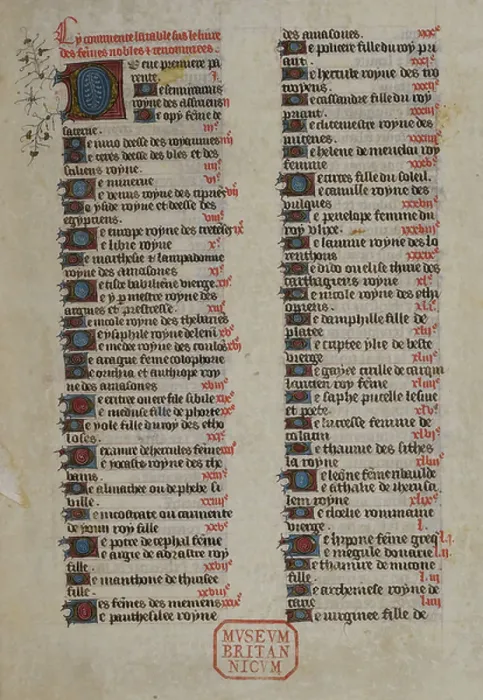 Cy commence la table sus le livre
des femes nobles & renommees.
De eue premiere pa
rente. I.
De semiramis
royne des assiriens II
De opy feme de
saterne. IIIe
De iuno deesse des royaumes IIIIe
De ceres deesse des bles et des
siciliens royne. Ve
De minerue VIe
De venus royne des cipries VIIe
De yside royne et deesse des
egypciens. VIIIe
De europe royne des cretes IXe
De libie royne Xe
De marthesie & lampadonne
royne des amasones XIe
De tisbe babiliene vierge XIIe
De ypmestre royne des
argiues et prestresse. XIIIe
De nicole royne des thebaries
De ysiphile royne de leni XVe
De medee royne des concos XVIe
De aragne feme colophone
De orichia et anthiope roy
nes des amasones XVIIIe
De eritree ou ere fille sibile XIXe
De meduse fille de phorce XXe
De yole fille du roy des etho
loses. XXIe
De yocaste royne des the
bains. XXIIIe
De almathee ou de phebe si
bille. XXIIIIe
De nicostrate ou carmente
de yonii roy fille XXVe
De pocre de cephal feme
De argie de adrastre roy
fille. XXVIIe
De manthone de thirasee
fille. XXVIIIe
Des femes des memens XXIXe
De panthesilee royne
des amasones. XXXe
De polixene fille du roy pri
ant. XXXIe
De hercube royne des tro
yens. XXXIIe
De cassandre fille du roy
priant. XXXIIIe
De clitemestre royne des
micenes. XXXIIIIe
De helene de menelai roy
femme XXXVe
De circes fille du soleil.
De camille royne des
vulques XXXVIIe
De penelope femme du
roy vlixe. XXXVIIIe
De lauine royne des lo
renthois XXXIXe
De dido ou elise thine des
carthagiens royne XLe
De nicole royne des ethi
opiens. XLIe
De damphille fille de
platee XLIIe
De vierge XLIIIe
De gayee cirille de tarqui
lancien roy feme XLIIIIe
De saphe pucelle lesue
et poete. XLVe
De lucresse femme de
colatin XLVIe
De thaume des sithes
la royne XLVIIe
De leone feme ribaulde
De athalie de iherusa
lem royne XLIXe
De cloelie rommaine
vierge. L.
De hypone feme greq' LI.
De megule donaire LII.
De thamire de micone
fille. LIII
De archemese royne de
carie LIIII
De virginee fille de
MVSEVM
BRITAN
NICVM